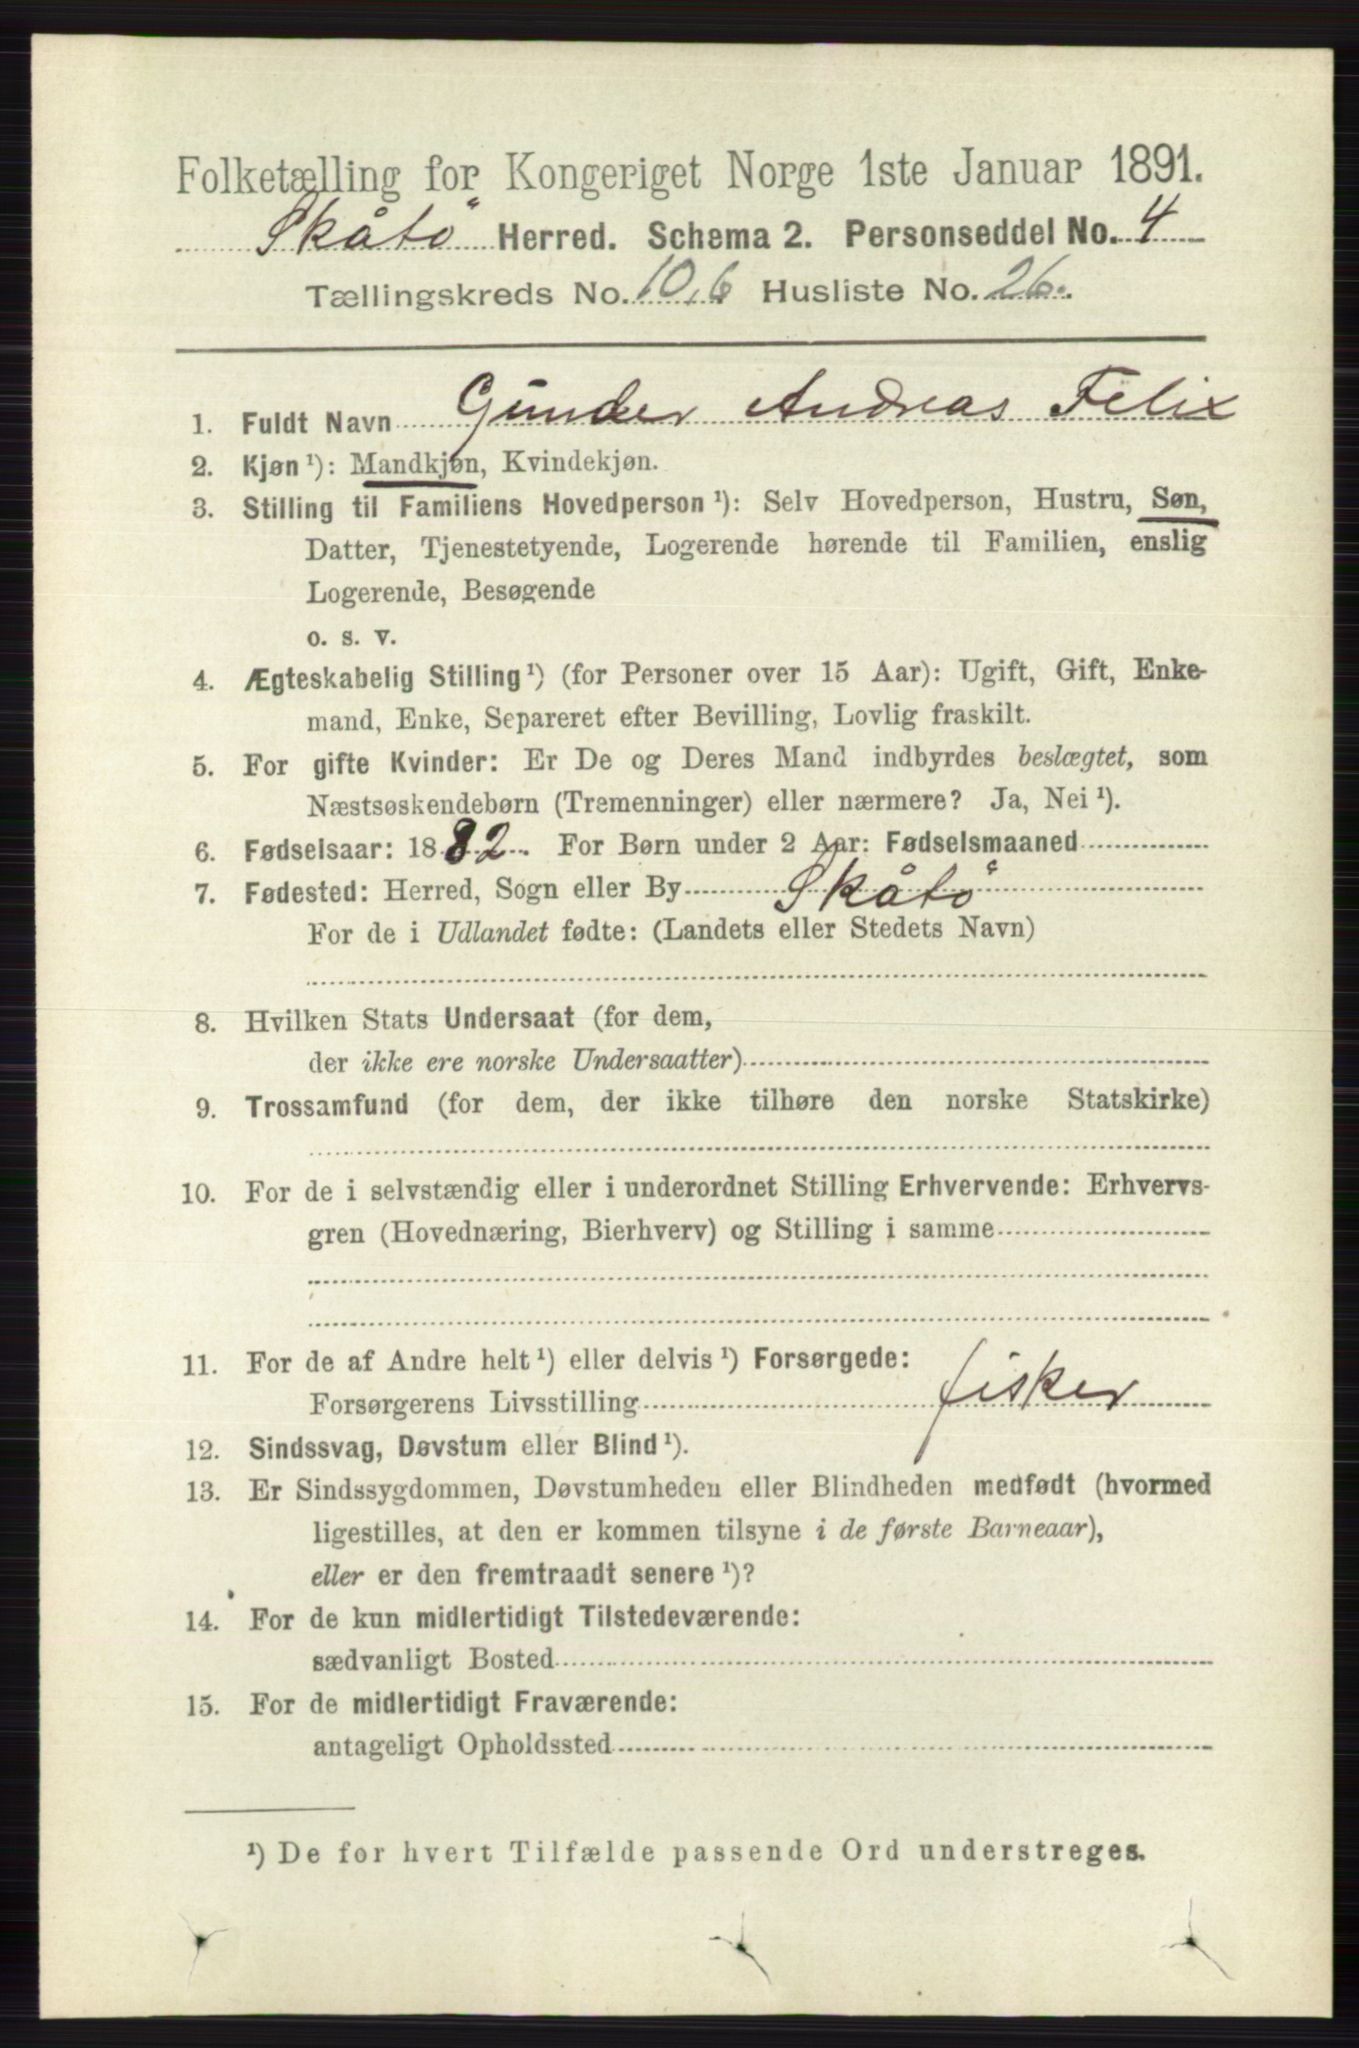 Folketælling for Kongeriget Norge 1ste Januar 1891.
Skåtö Herred. Schema 2. Personseddel No. 4
Tællingskreds No. 10,6 Husliste No. 26.
1. Fuldt Navn Gunder Andreas Felix
2. Kjøn ¹): Mandkjøn, Kvindekjøn.
3. Stilling til Familiens Hovedperson ¹): Selv Hovedperson, Hustru, Søn,
Datter, Tjenestetyende, Logerende hørende til Familien, enslig
Logerende, Besøgende
o. s. v.
4. Ægteskabelig Stilling ¹) (for Personer over 15 Aar): Ugift, Gift, Enke-
mand, Enke, Separeret efter Bevilling, Lovlig fraskilt.
5. For gifte Kvinder: Er De og Deres Mand indbyrdes beslægtet, som
Næstsøskendebørn (Tremenninger) eller nærmere? Ja, Nei ¹).
6. Fødselsaar: 1882. For Børn under 2 Aar: Fødselsmaaned
7. Fødested: Herred, Sogn eller By Skåtö
For de i Udlandet fødte: (Landets eller Stedets Navn)
8. Hvilken Stats Undersaat (for dem,
der ikke ere norske Undersaatter)
9. Trossamfund (for dem, der ikke tilhøre den norske Statskirke)
10. For de i selvstændig eller i underordnet Stilling Erhvervende: Erhvervs-
gren (Hovednæring, Bierhverv) og Stilling i samme
11. For de af Andre helt ¹) eller delvis ¹) Forsørgede:
Forsørgerens Livsstilling fisker
12. Sindssvag, Døvstum eller Blind ¹).
13. Er Sindssygdommen, Døvstumheden eller Blindheden medfødt (hvormed
ligestilles, at den er kommen tilsyne i de første Barneaar),
eller er den fremtraadt senere ¹)?
14. For de kun midlertidigt Tilstedeværende:
sædvanligt Bosted
15. For de midlertidigt Fraværende:
antageligt Opholdssted
¹) De for hvert Tilfælde passende Ord understreges.